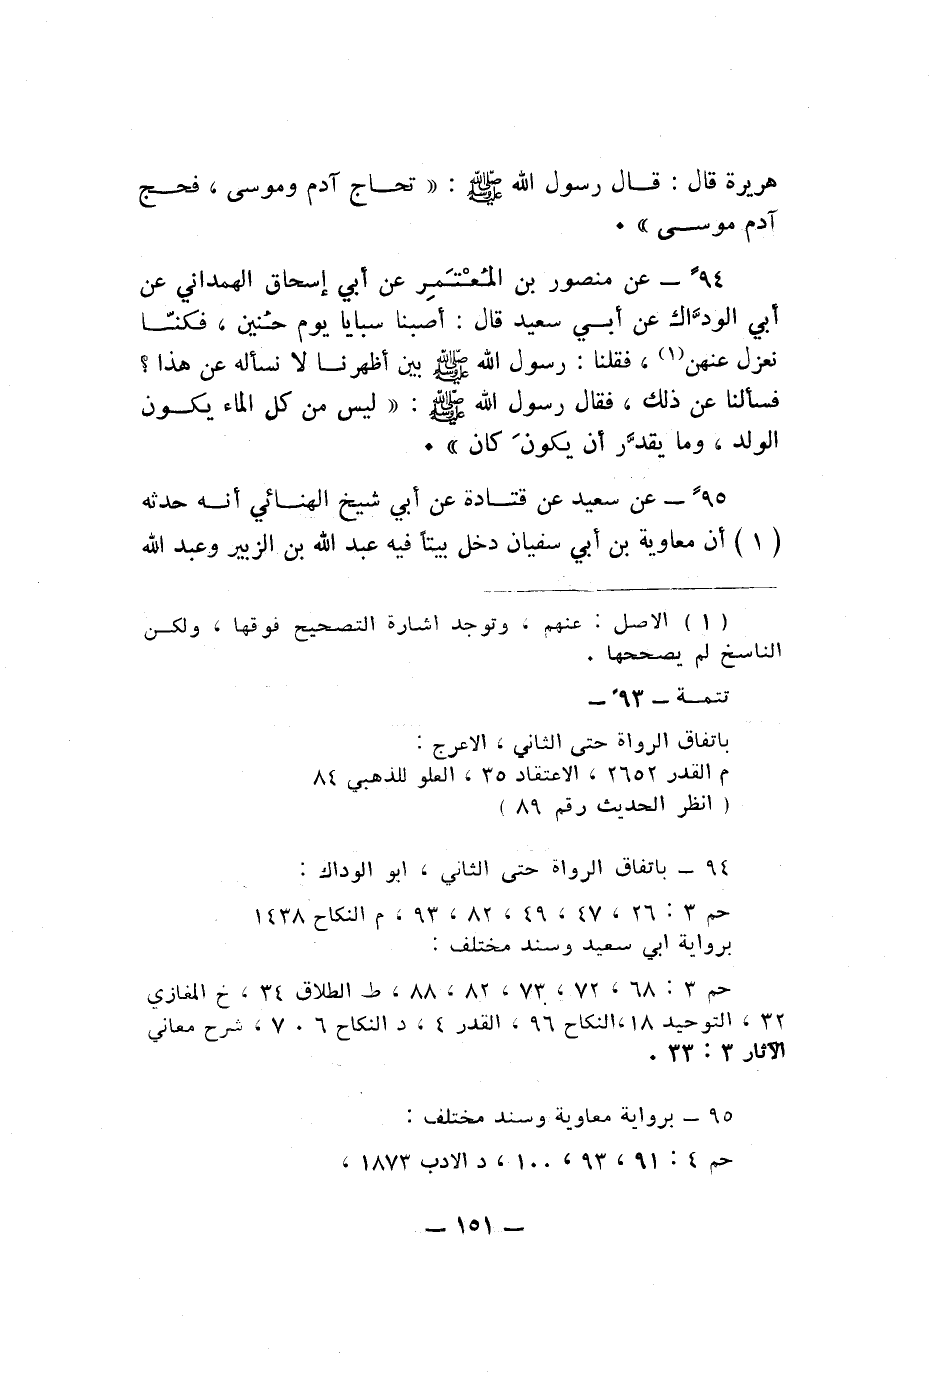 هريرة قال : قـــال رسول الله ﷺ : « تحـــاج آدم وموسى ، فحـــج
آدم موســـى » •
٩٤ً ـ عن منصور بن المُعْتَمِر عن أبي إسحاق الهمداني عن
أبي الودّاك عن أبـــي سعيد قال : أصبنا سبايا يوم حنين ، فكنّـــا
نعزل عنهن(١) ، فقلنا : رسول الله ﷺ بين أظهرنـــا لا نسأله عن هذا ؟
فسألنا عن ذلك ، فقال رسول الله ﷺ : « ليس من كل الماء يكـــون
الولد ، وما يقدَّر أن يكونَ كان » •
٩٥ً ـ عن سعيد عن قتـــادة عن أبي شيخ الهنـــائي أنـــه حدثه
( ١ ) أن معاوية بن أبي سفيان دخل بيتاً فيه عبد الله بن الزبير وعبد الله
( ١ ) الاصل : عنهم ، وتوجد اشارة التصحيح فوقها ، ولكـــن
الناسخ لم يصححها .
تتمـــة ـ ٩٣ً ـ
باتفاق الرواة حتى الثاني ، الاعرج :
م القدر ٢٦٥٢ ، الاعتقاد ٣٥ ، العلو للذهبي ٨٤
( انظر الحديث رقم ٨٩ )
٩٤ ـ باتفاق الرواة حتى الثاني ، ابو الوداك :
حم ٣ : ٢٦ ، ٤٧ ، ٤٩ ، ٨٢ ، ٩٣ ، م النكاح ١٤٣٨
برواية ابي سعيد وسند مختلف :
حم ٣ : ٦٨ ، ٧٢ ، ٧٣ ، ٨٢ ، ٨٨ ، ط الطلاق ٣٤ ، خ المغازي
٣٢ ، التوحيد ١٨ ،النكاح ٩٦ ، القدر ٤ ، د النكاح ٦ ٠ ٧ ، شرح معاني
الآثار ٣ : ٣٣ .
٩٥ ـ برواية معاوية وسند مختلف :
حم ٤ : ٩١ ، ٩٣ ، ١٠٠ ، د الادب ١٨٧٣ ،
ـ ١٥١ ـ